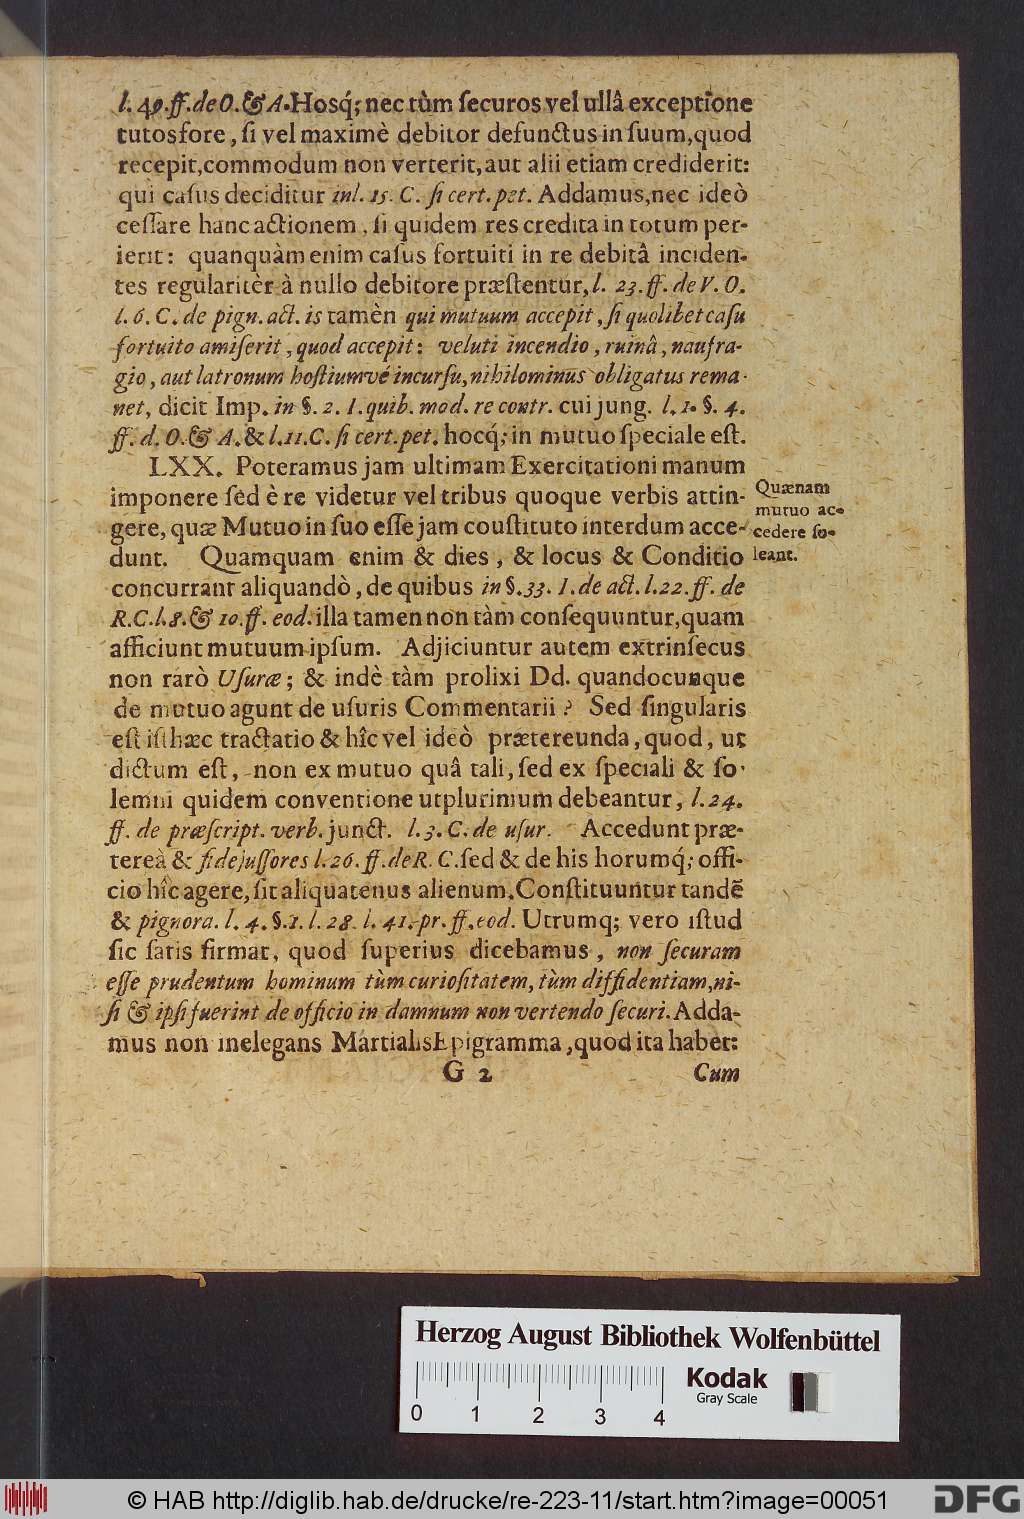 l. 49. ff. de O. & A. Hosq́; nec tùm ſecuros vel ullâ exceptione
tutos fore, ſi vel maximè debitor defunctus in ſuum, quod
recepit, commodum non verterit, aut alii etiam crediderit:
qui caſus deciditur in l. 15. C. ſi cert. pet. Addamus, nec ideò
ceſſare hanc actionem, ſi quidem res credita in totum per-
ierit: quanquàm enim caſus fortuiti in re debitâ inciden-
tes regularitèr à nullo debitore præſtentur, l. 23. ff. de V. O.
l. 6. C. de pign. act. is tamèn qui mutuum accepit, ſi quolibet caſu
fortuito amiſerit, quod accepit: veluti incendio, ruinâ, naufra-
gio, aut latronum hoſtiumvé incurſu, nihilominus obligatus rema-
net, dicit Imp. in §. 2. I. quib. mod. re contr. cui jung. l. 1. §. 4.
ff. d. O. & A. & l. 11. C. ſi cert. pet. hocq́; in mutuo ſpeciale eſt.
LXX. Poteramus jam ultimam Exercitationi manum
imponere ſèd è re videtur vel tribus quoque verbis attin-
gere, quæ Mutuo in ſuo eſſe jam couſtituto interdum acce-
dunt. Quamquam enim & dies, & locus & Conditio
concurrant aliquandò, de quibus in §. 33. I. de act. l. 22. ff. de
R. C. l. 8. & 10. ff. eod. illa tamen non tàm conſequuntur, quam
afficiunt mutuum ipſum. Adjiciuntur autem extrinſecus
non rarò Uſuræ; & indè tàm prolixi Dd. quandocunque
de mutuo agunt de uſuris Commentarii? Sed ſingularis
eſt iſthæc tractatio & hîc vel ideò prætereunda, quod, ut
dictum eſt, non ex mutuo quâ tali, ſed ex ſpeciali & ſo-
lemni quidem conventione utplurimum debeantur, l. 24.
ff. de præſcript. verb. junct. l. 3. C. de uſur. Accedunt præ-
tereà & fidejuſſores l. 26. ff. de R. C. ſed & de his horumq́; offi-
cio hîc agere, ſit aliquatenus alienum. Conſtituuntur tandẽ
& pignora. l. 4. §. 1. l. 28. l. 41. pr. ff. eod. Utrumq; vero iſtud
ſic ſatis firmat, quod ſuperius dicebamus, non ſecuram
eſſe prudentum hominum tùm curioſitatem, tùm diffidentiam, ni-
ſi & ipſi fuerint de officio in damnum non vertendo ſecuri. Adda-
mus non inelegans Martialis Epigramma, quod ita habet:
G 2 Cum
Quænam
mutuo ac-
cedere ſo-
leant.
Herzog August Bibliothek Wolfenbüttel
Kodak
Gray Scale
0 1 2 3 4
© HAB http://diglib.hab.de/drucke/re-223-11/start.htm?image=00051
DFG